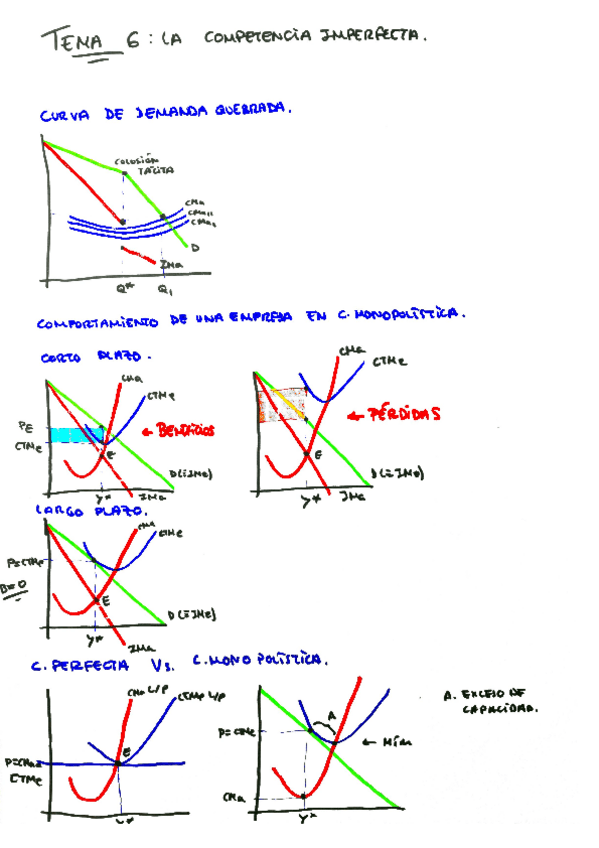 TEMA 6: LA COMPETENCIA IMPERFECTA.
CURVA DE DEMANDA QUEBRADA.
COLUSIÓN
TÁCITA
CMa
CMa1
CMa2
D
IMa
Q* Q1
COMPORTAMIENTO DE UNA EMPRESA EN C. MONOPOLÍSTICA.
CORTO PLAZO.
CMa
CTMe
PE
CTMe
← BENEFICIOS
E
D(=IMe)
y* IMa
CMa
CTMe
← PÉRDIDAS
E
D(=IMe)
y* IMa
LARGO PLAZO.
CMa
CTMe
P=CTMe
B=0
E
D(=IMe)
y*
IMa
C. PERFECTA Vs. C. MONOPOLÍSTICA.
CMa L/P CTMe L/P
E
P=CMa=
CTMe
y*
P=CTMe
A
← MÍN
CMa
y*
A. EXCESO DE
CAPACIDAD.